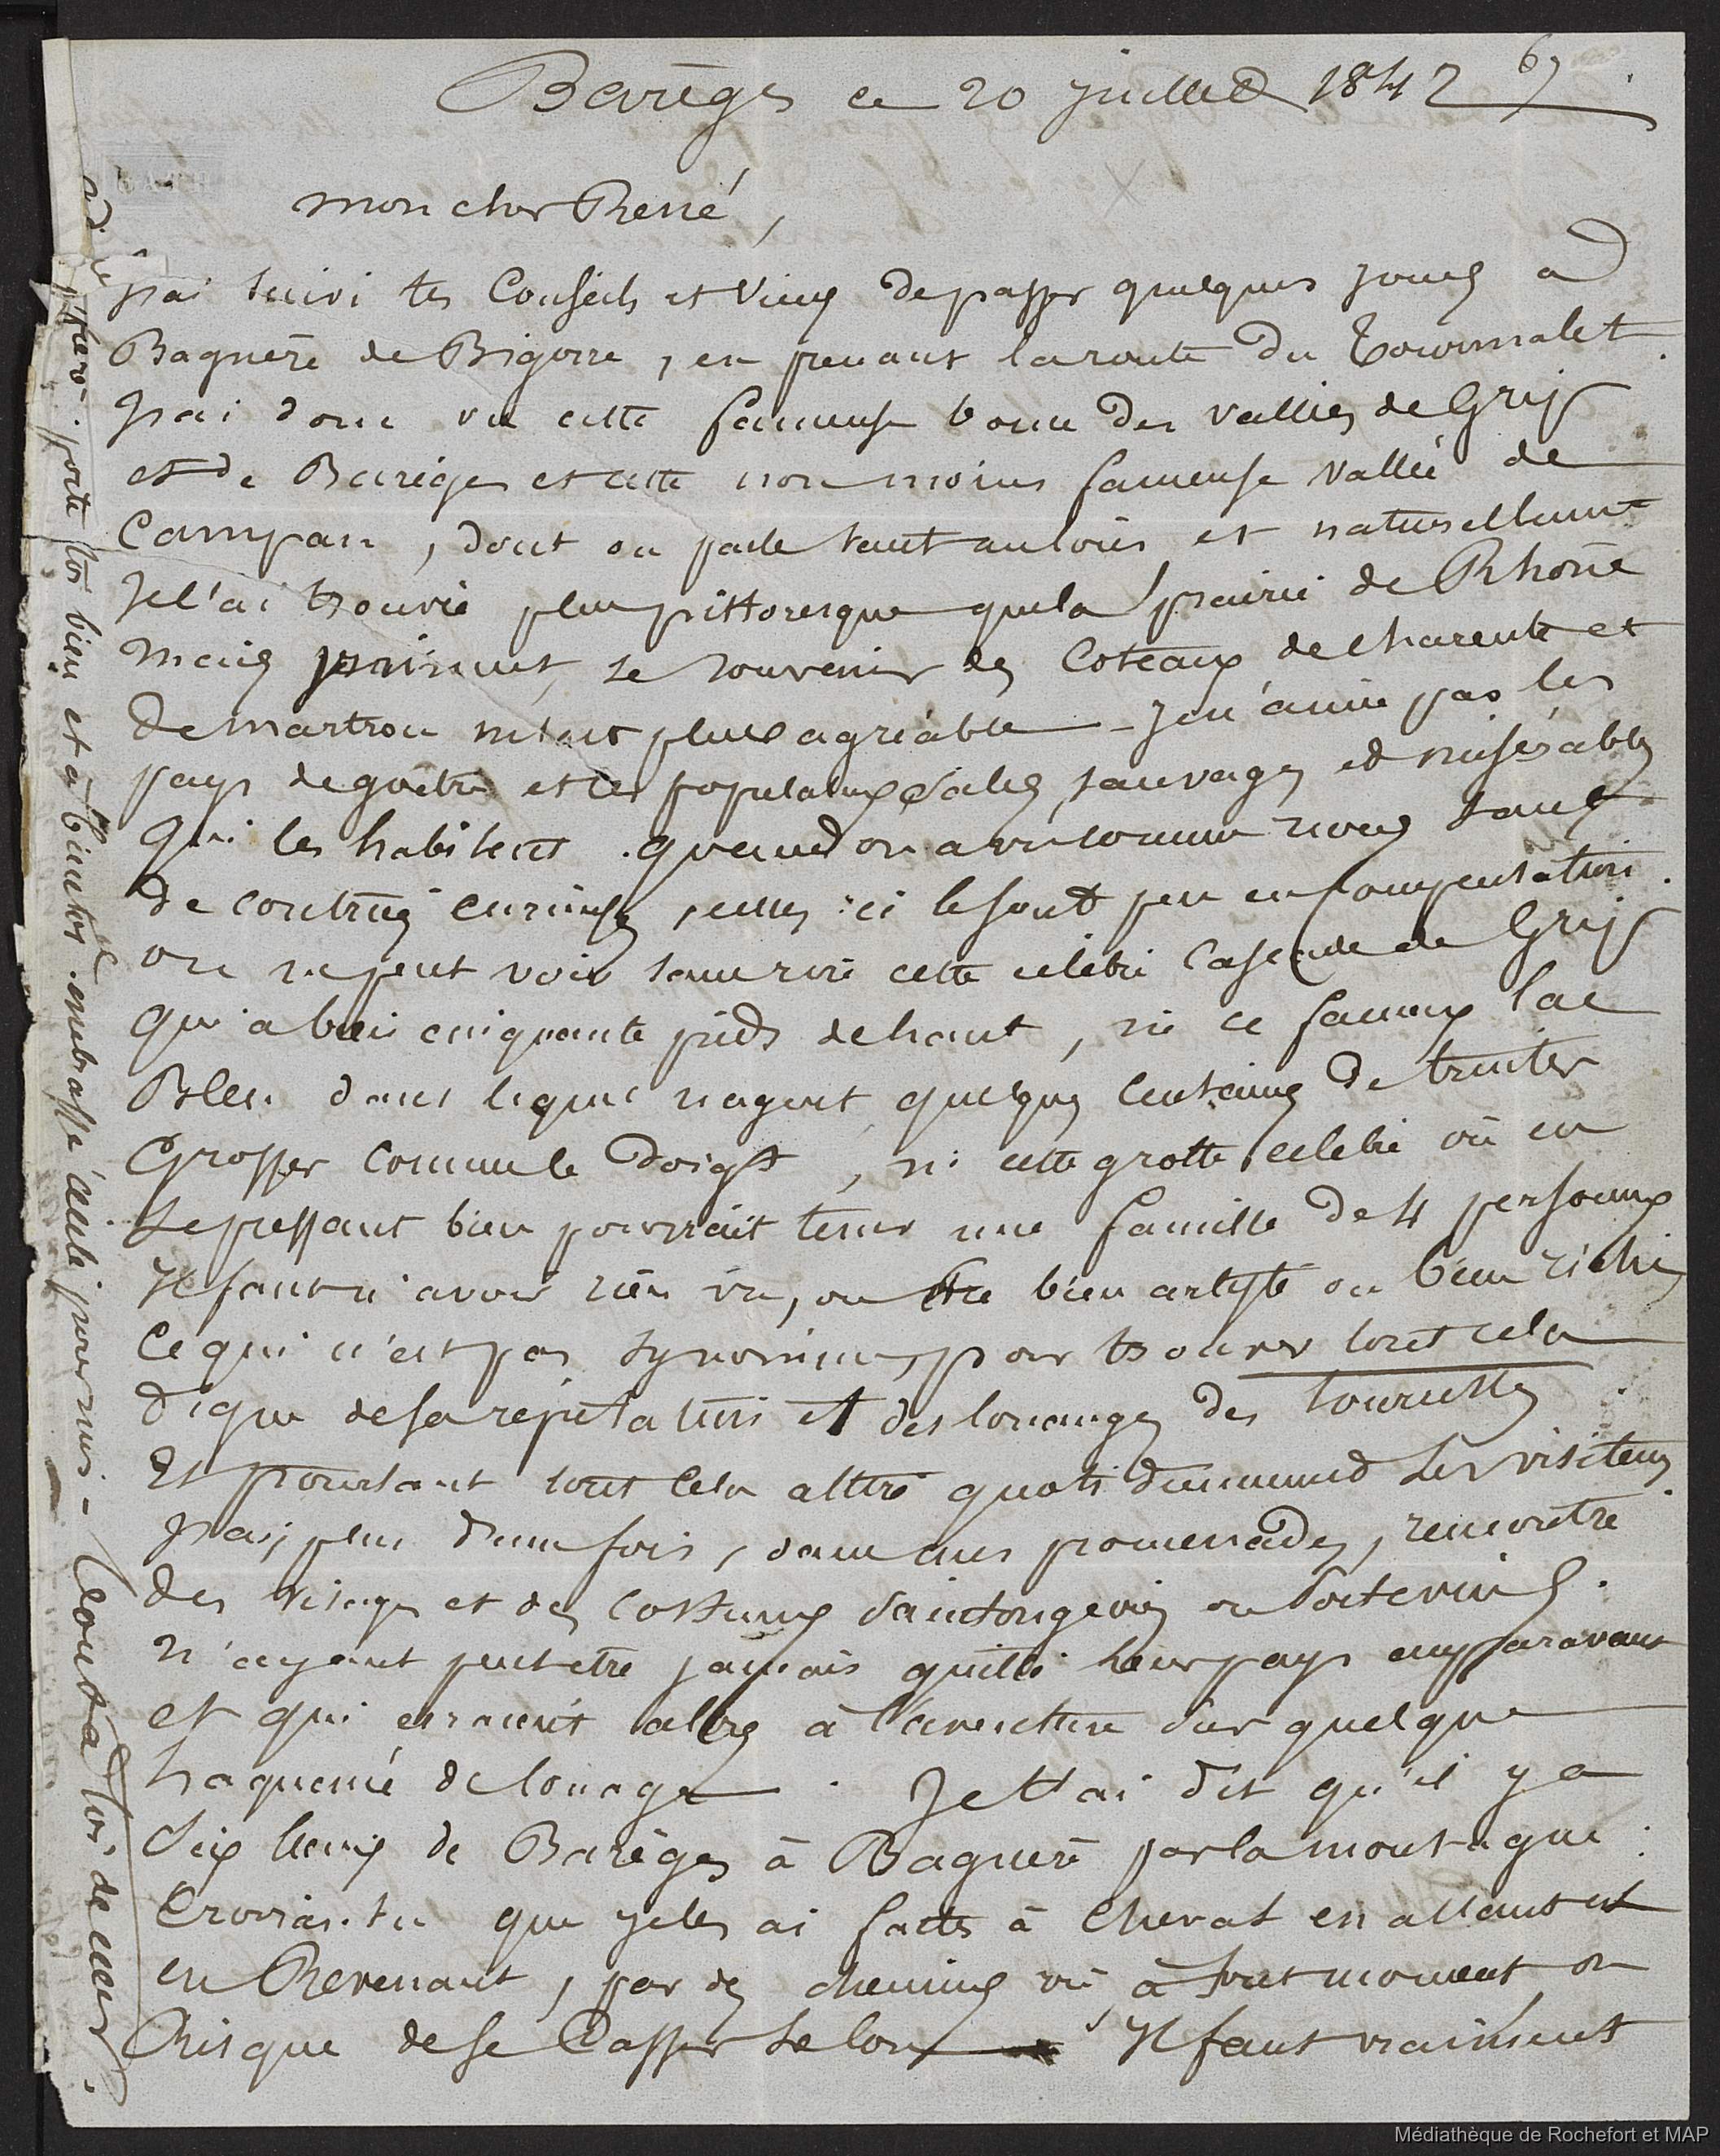 Barèges ce 20 juillet 1842
67
mon cher René,
j'ai suivi tes Conseils et viens de passer quelques jours a
Bagnère de Bigorre, en prenant la route du Tourmalet.
J'ai donc vu cette fameuse des vallées de Grip
et de Barèges et cette non moins fameuse vallée de
Campan, dont on parle tant au loin et naturellement
Je l'ai trouvée plus pittoresque que la prairie de Rhosne
mais le souvenir des Coteaux de charente et
de martrou m'est plus agréable - Je n'aime pas les
pays de goitre et les sales, sauvages et misérables
qui les habitent. quand on a vu comme nous tant
de contrées curieuses, celles-ci le sont peu en compensation.
on ne peut voir sans rire cette célèbre Cascade de Grip
qui a bien cinquante pieds de haut, ni ce fameux lac
Bleu dans lequel nagent quelques centaines de truites
Grosses comme le doigt, ni cette grotte célèbre où en
se pressant bien pourrait tenir une famille de 4 personnes
Il faut n'avoir rien vu, ou être bien artiste ou bien riche,
Ce qui n'est pas synonime, pour trouver tout cela
digne de sa réputation et des louanges des touristes.
Et pourtant tout cela attire quotidiennement les visiteurs.
J'ai, plus d'une fois, dans mes promenades, rencontré
des visages et des costumes Saintongeois ou Poitevins.
n'ayant peut etre jamais quitté leur pays auparavant
et qui erraient à l'aventure sur quelque
haquenée de louage. Je t'ai dit qu'il y a
Six lieues de Barèges à Bagnère par la montagne.
Croirais-tu que je les ai faites à cheval en allant et
en Revenant, par des chemins où à tout moment on
Risque de se Casser le cou Il faut vraiment
porte toi bien et à bientot. embrasse adèle pour moi - tout à toi de cœur.
Médiathèque de Rochefort et MAP